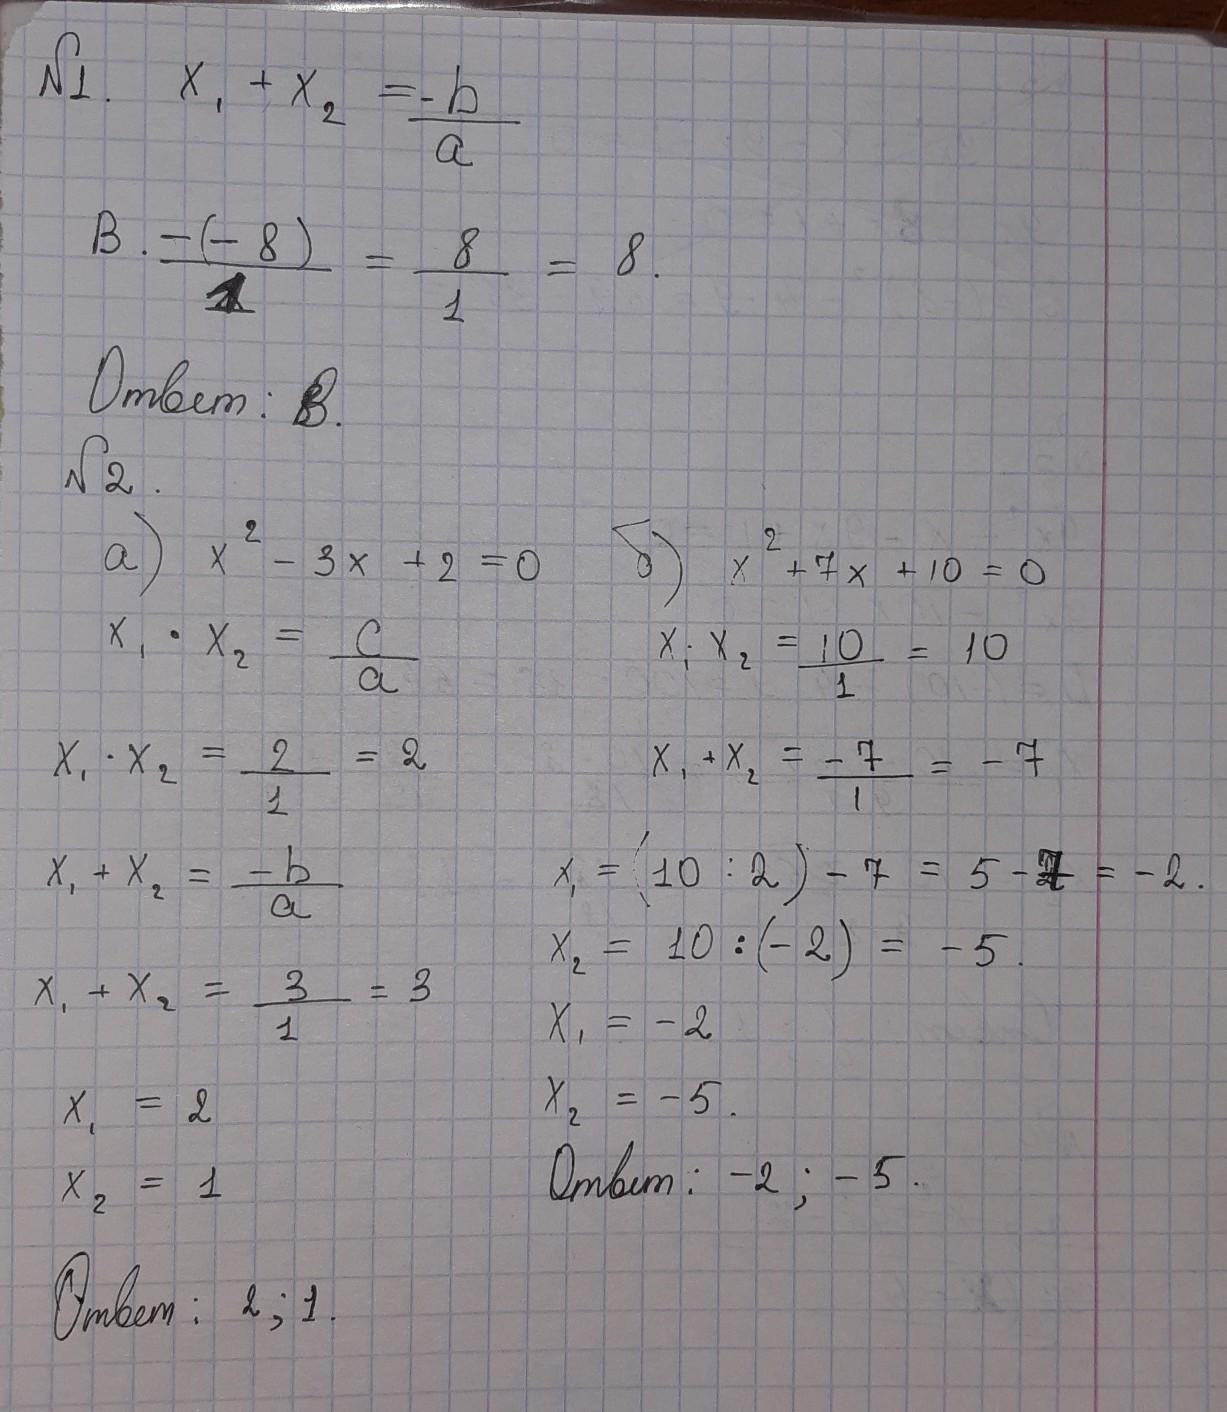 №1. x₁ + x₂ = -b/a
В. -(-8)/1 = 8/1 = 8.
Ответ: В.
№2.
а) x² - 3x + 2 = 0
x₁ · x₂ = c/a
x₁ · x₂ = 2/1 = 2
x₁ + x₂ = -b/a
x₁ + x₂ = 3/1 = 3
x₁ = 2
x₂ = 1
Ответ: 2; 1.
б) x² + 7x + 10 = 0
x₁ · x₂ = 10/1 = 10
x₁ + x₂ = -7/1 = -7
x₁ = (10 : 2) - 7 = 5 - 7 = -2.
x₂ = 10 : (-2) = -5.
x₁ = -2
x₂ = -5.
Ответ: -2; -5.